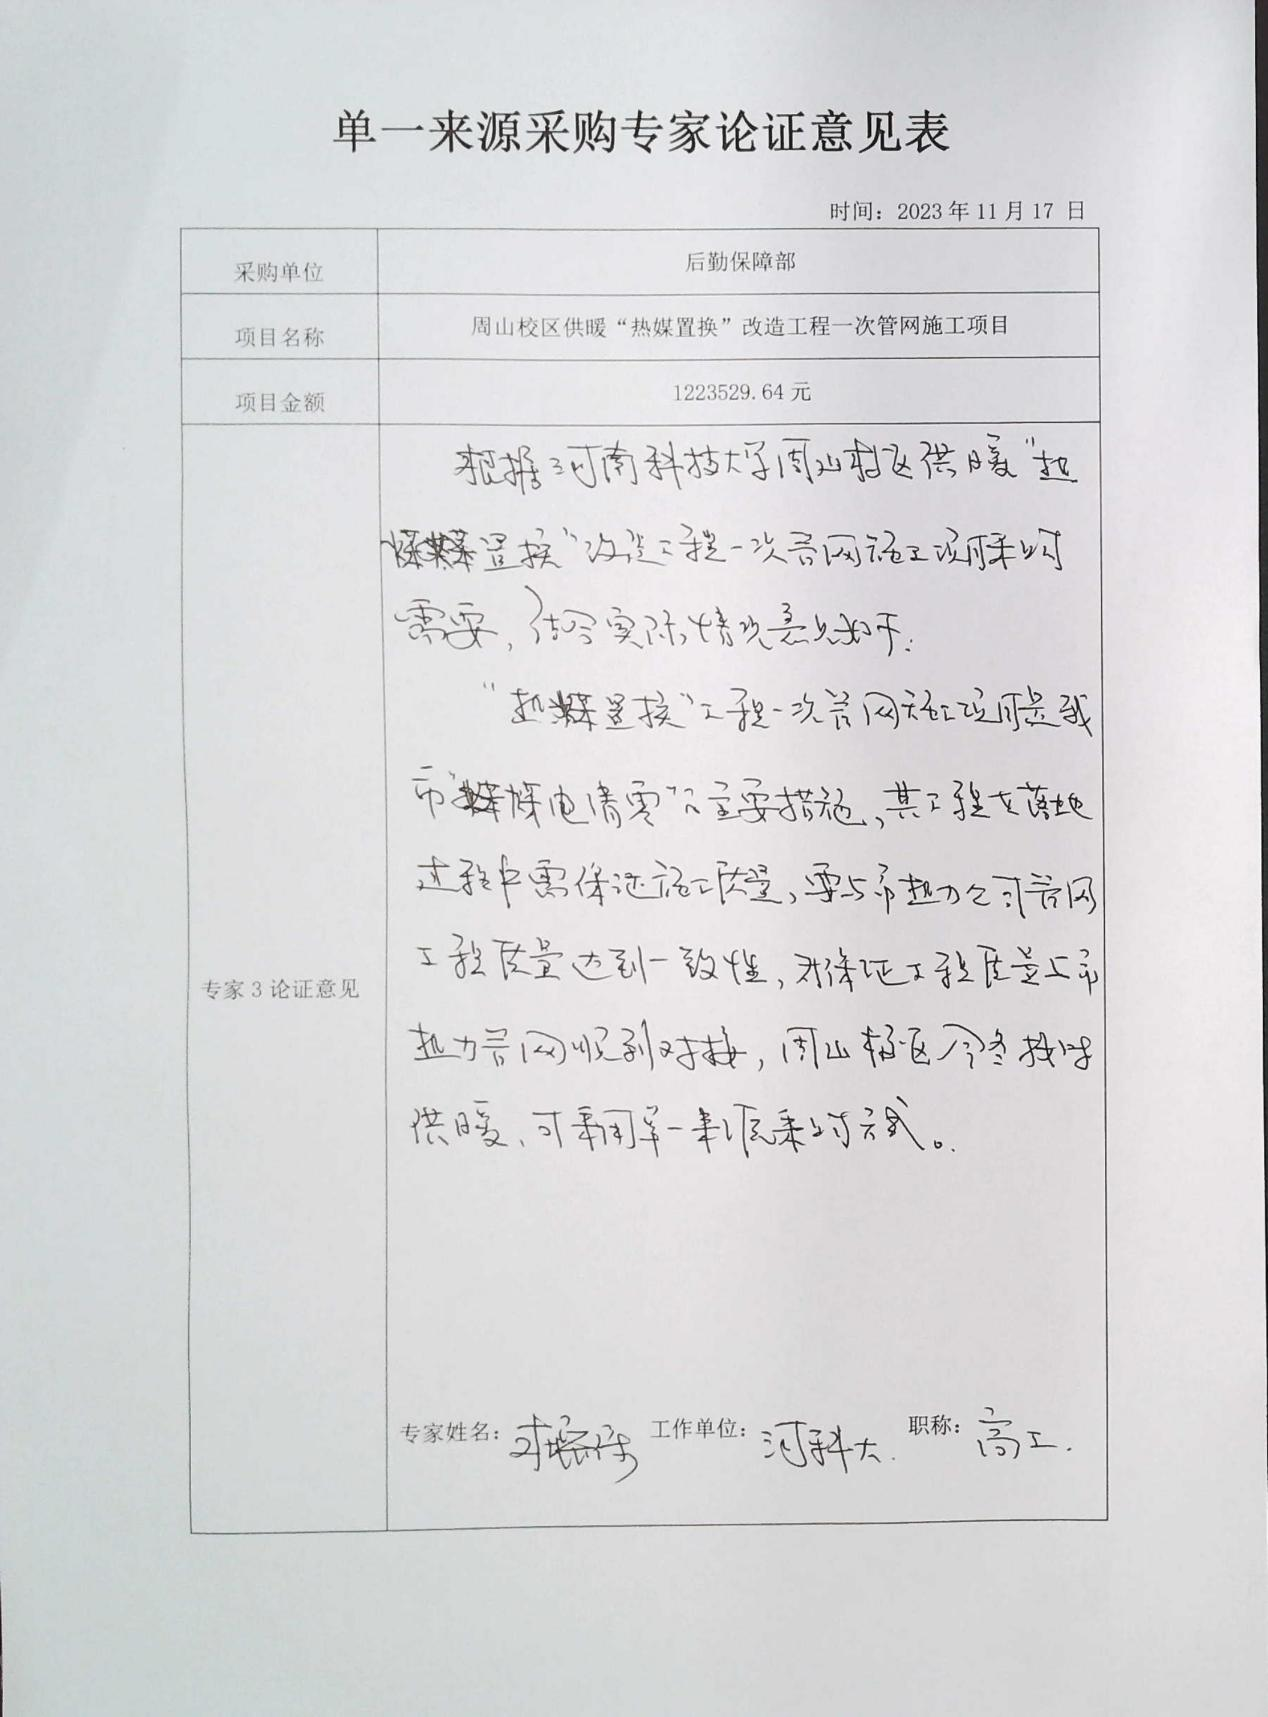 单一来源采购专家论证意见表
时间：2023年11月17 日
采购单位
后勤保障部
项目名称
周山校区供暖“热媒置换”改造工程一次管网施工项目
项目金额
1223529.64元
专家3论证意见
根据河南科技大学周山校区供暖“热
媒置换”改造工程一次管网施工项目采购
需要，结合实际情况意见如下：
“热媒置换”工程一次管网施工项目是我
市“煤电清零”的主要措施，其工程在落地
过程中需保证施工质量，要与市热力公司管网
工程质量达到一致性，为保证工程质量与市
热力管网顺利对接，周山校区今冬按时
供暖，可采用单一来源采购方式。
专家姓名：
工作单位：河科大.
职称：高工.